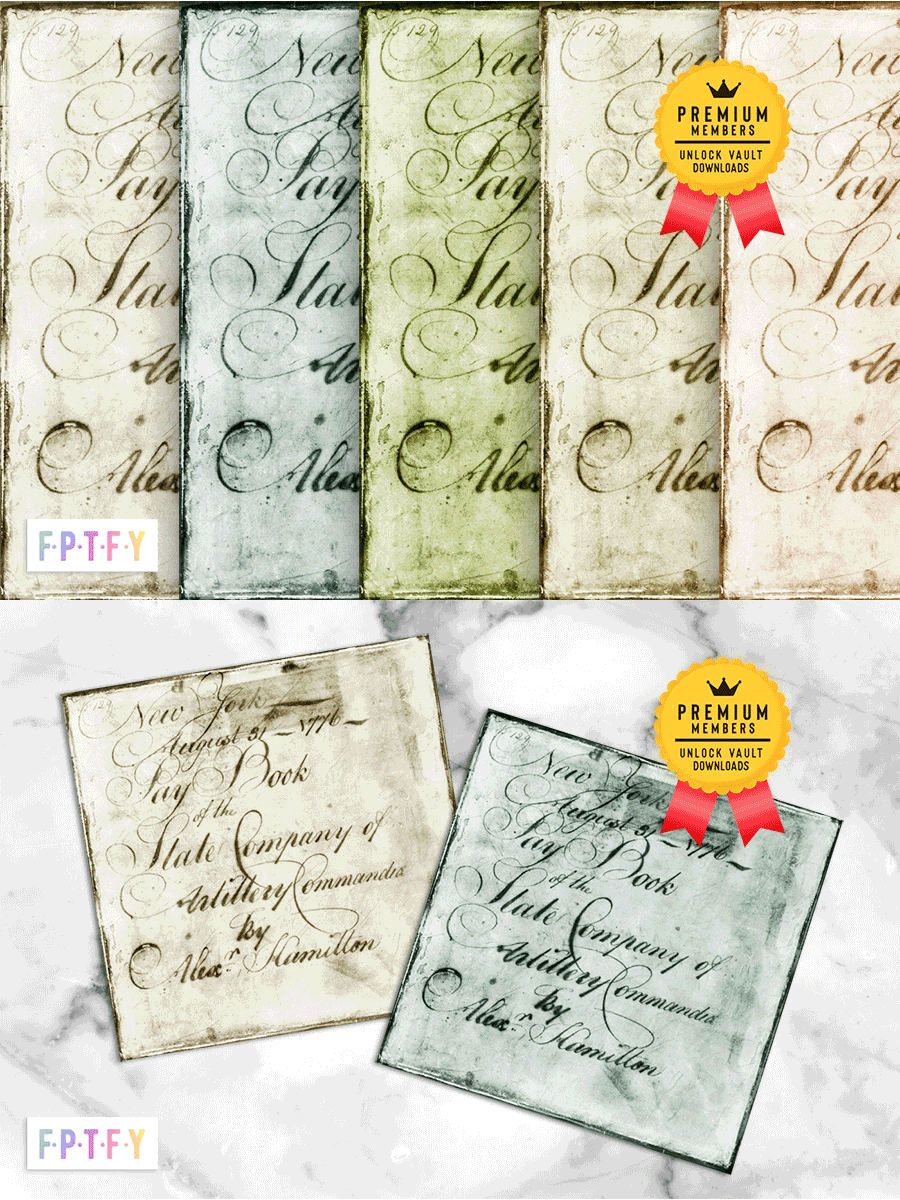 p 129
New
Pay
Stat
Ar
Alex
p 129
New
Pay
Stat
Ar
Alex
p 129
New
Pay
Stat
Ar
Alex
p 129
New
Pay
Stat
Ar
Alex
129
New
Pay
Stat
Ar
Alex
PREMIUM
MEMBERS
UNLOCK VAULT
DOWNLOADS
F·P·T·F·Y
129
New York
August 31 1776
Pay Book
of the
State Company of
Artillery Commanded
by
Alexr Hamilton
129
New York
August 31 1776
Pay Book
of the
State Company of
Artillery Commanded
by
Alexr Hamilton
PREMIUM
MEMBERS
UNLOCK VAULT
DOWNLOADS
F·P·T·F·Y